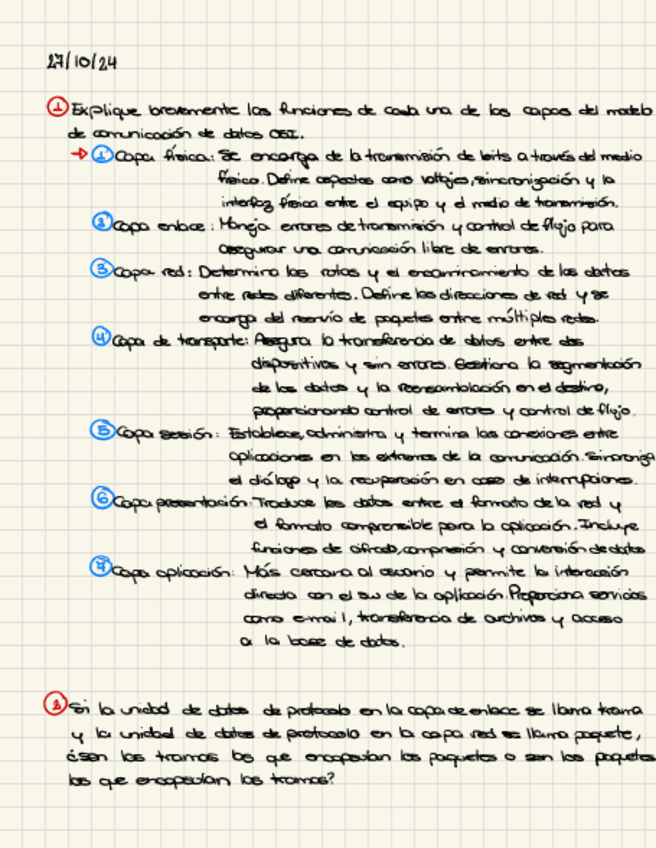 27/10/24
① Explique brevemente las funciones de cada una de las capas del modelo
de comunicación de datos OSI.
→ ① Capa física: Se encarga de la transmisión de bits a través del medio
físico. Define aspectos como voltajes, sincronización y la
interfaz física entre el equipo y el medio de transmisión.
② Capa enlace: Maneja errores de transmisión y control de flujo para
asegurar una comunicación libre de errores.
③ Capa red: Determina las rutas y el encaminamiento de los datos
entre redes diferentes. Define las direcciones de red y se
encarga del reenvío de paquetes entre múltiples redes.
④ Capa de transporte: Asegura la transferencia de datos entre dos
dispositivos y sin errores. Gestiona la segmentación
de los datos y la reensamblación en el destino,
proporcionando control de errores y control de flujo.
⑤ Capa sesión: Establece, administra y termina las conexiones entre
aplicaciones en los extremos de la comunicación. Sincroniza
el diálogo y la recuperación en caso de interrupciones.
⑥ Capa presentación: Traduce los datos entre el formato de la red y
el formato comprensible para la aplicación. Incluye
funciones de cifrado, compresión y conversión de datos
⑦ Capa aplicación: Más cercana al usuario y permite la interacción
directa con el sw de la aplicación. Proporciona servicios
como e-mail, transferencia de archivos y acceso
a la base de datos.
② Si la unidad de datos de protocolo en la capa de enlace se llama trama
y la unidad de datos de protocolo en la capa red es llama paquete,
¿son las tramas las que encapsulan los paquetes o son los paquetes
los que encapsulan las tramas?